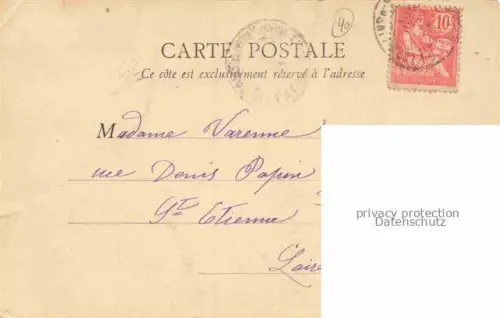 40
10
CARTE POSTALE
Ce côte est exclusivement réservé à l'adresse
Madame Varenne
rue Denis Papin
St Etienne
Loire
privacy protection
Datenschutz